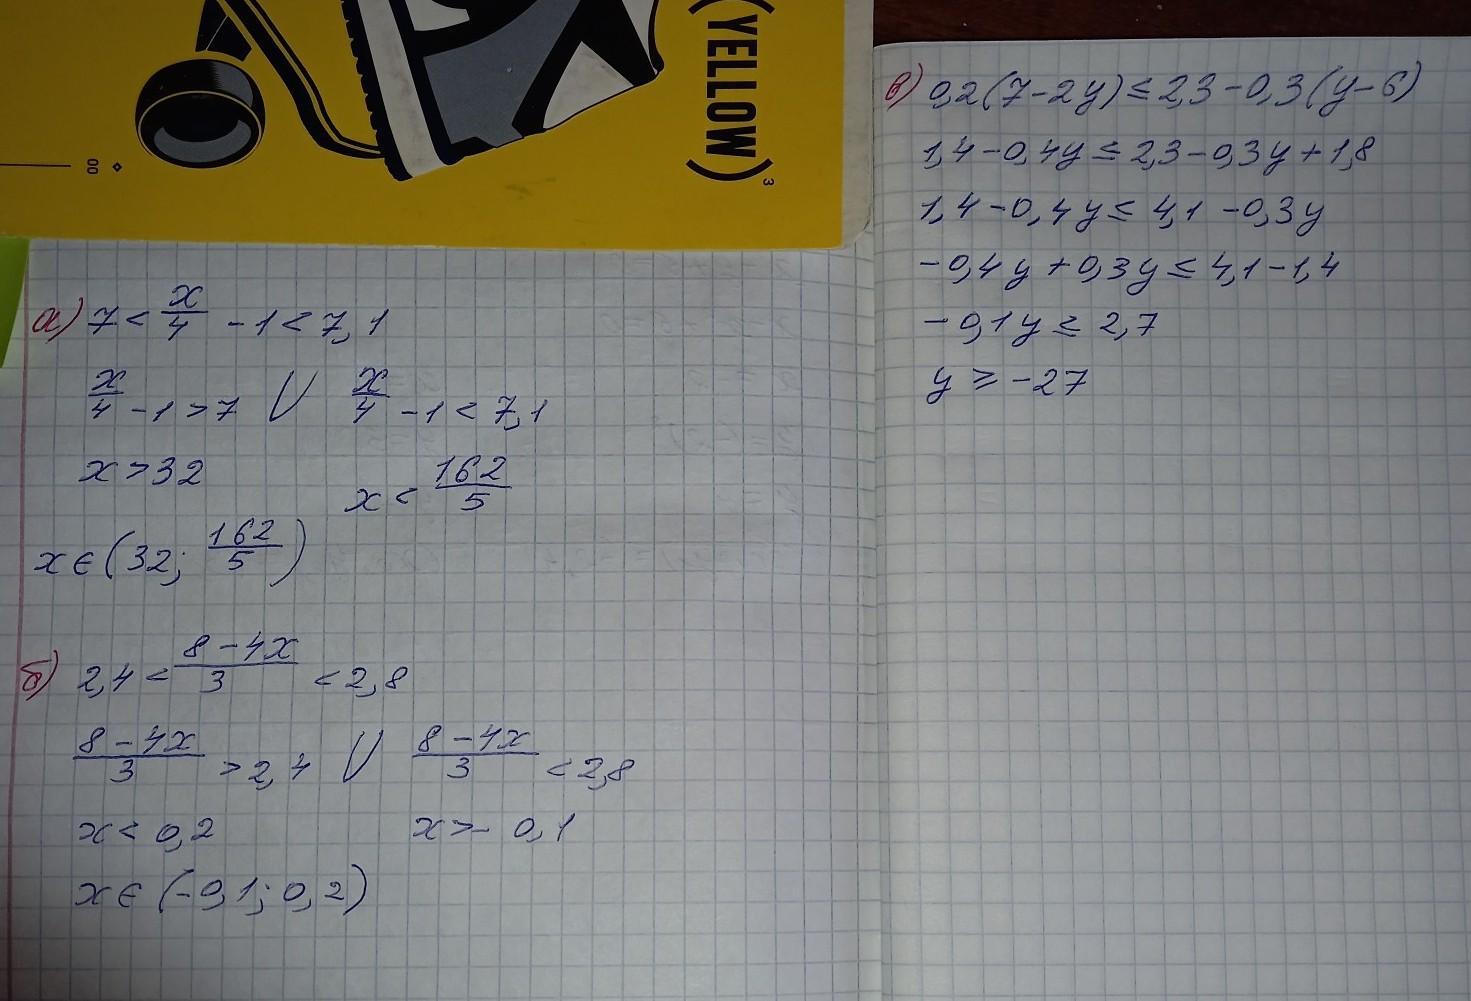 (YELLOW)³
00
а) 7 < x/4 - 1 < 7,1
x/4 - 1 > 7 V x/4 - 1 < 7,1
x > 32 x < 162/5
x ∈ (32; 162/5)
б) 2,4 < (8 - 4x)/3 < 2,8
(8 - 4x)/3 > 2,4 V (8 - 4x)/3 < 2,8
x < 0,2 x > - 0,1
x ∈ (-0,1; 0,2)
в) 0,2(7-2y) ≤ 2,3 - 0,3(y-6)
1,4 - 0,4y ≤ 2,3 - 0,3y + 1,8
1,4 - 0,4y ≤ 4,1 - 0,3y
-0,4y + 0,3y ≤ 4,1 - 1,4
-0,1y ≤ 2,7
y ≥ -27